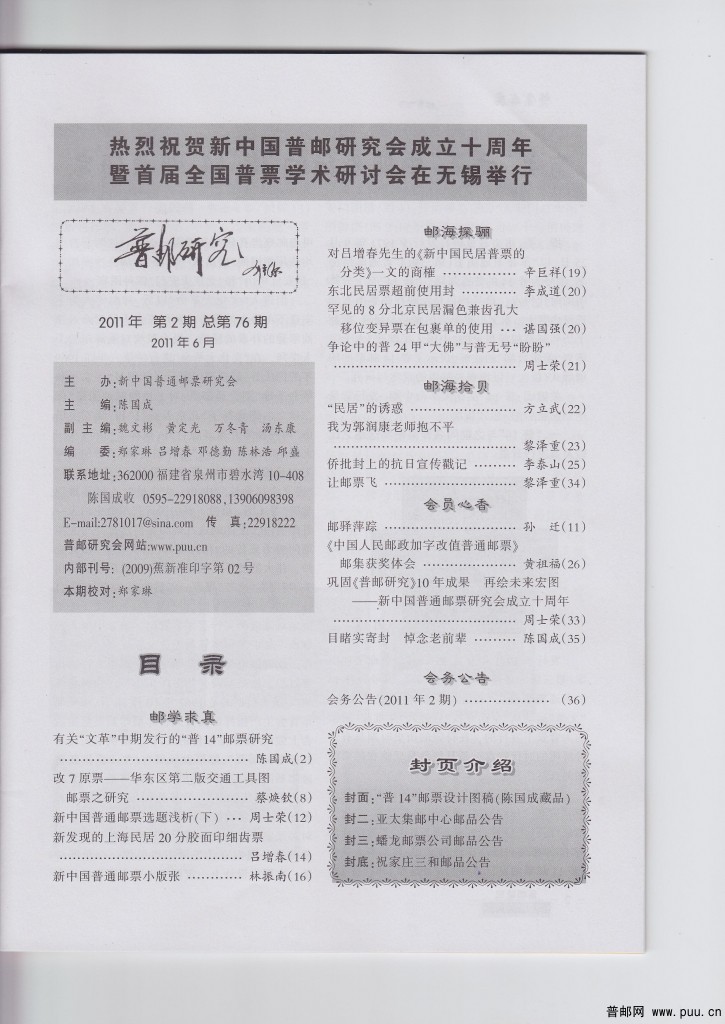 热烈祝贺新中国普邮研究会成立十周年
暨首届全国普票学术研讨会在无锡举行
普邮研究
2011年 第2期 总第76期
2011年6月
主 办:新中国普通邮票研究会
主 编:陈国成
副 主 编:魏文彬 黄定光 万冬青 汤东康
编 委:郑家琳 吕增春 邓德勤 陈林浩 邱盛
联系地址:362000 福建省泉州市碧水湾 10-408
陈国成收 0595-22918088,13906098398
E-mail:2781017@sina.com 传 真:22918222
普邮研究会网站:www.puu.cn
内部刊号: (2009)蕉新准印字第 02 号
本期校对:郑家琳
目 录
邮学求真
有关“文革”中期发行的“普 14”邮票研究
…………………………………… 陈国成(2)
改 7 原票——华东区第二版交通工具图
邮票之研究 …………………… 蔡焕钦(8)
新中国普通邮票选题浅析(下) … 周士荣(12)
新发现的上海民居 20 分胶面印细齿票
…………………………………… 吕增春(14)
新中国普通邮票小版张 ………… 林振南(16)
邮海探骊
对吕增春先生的《新中国民居普票的
分类》一文的商榷 …………… 辛巨祥(19)
东北民居票超前使用封 ………… 李成道(20)
罕见的 8 分北京民居漏色兼齿孔大
移位变异票在包裹单的使用 … 谌国强(20)
争论中的普 24 甲“大佛”与普无号“盼盼”
…………………………………… 周士荣(21)
邮海拾贝
“民居”的诱惑 ………………… 方立武(22)
我为郭润康老师抱不平
…………………………………… 黎泽重(23)
侨批封上的抗日宣传戳记 ……… 李泰山(25)
让邮票飞 ………………………… 黎泽重(34)
会员心香
邮驿萍踪 ………………………… 孙 迁(11)
《中国人民邮政加字改值普通邮票》
邮集获奖体会 ………………… 黄祖福(26)
巩固《普邮研究》10 年成果 再绘未来宏图
——新中国普通邮票研究会成立十周年
…………………………………… 周士荣(33)
目睹实寄封 悼念老前辈 ……… 陈国成(35)
会务公告
会务公告(2011 年 2 期) ……………… (36)
封页介绍
封面:“普 14”邮票设计图稿(陈国成藏品)
封二:亚太集邮中心邮品公告
封三:蟠龙邮票公司邮品公告
封底:祝家庄三和邮品公告
普邮网 www.puu.cn